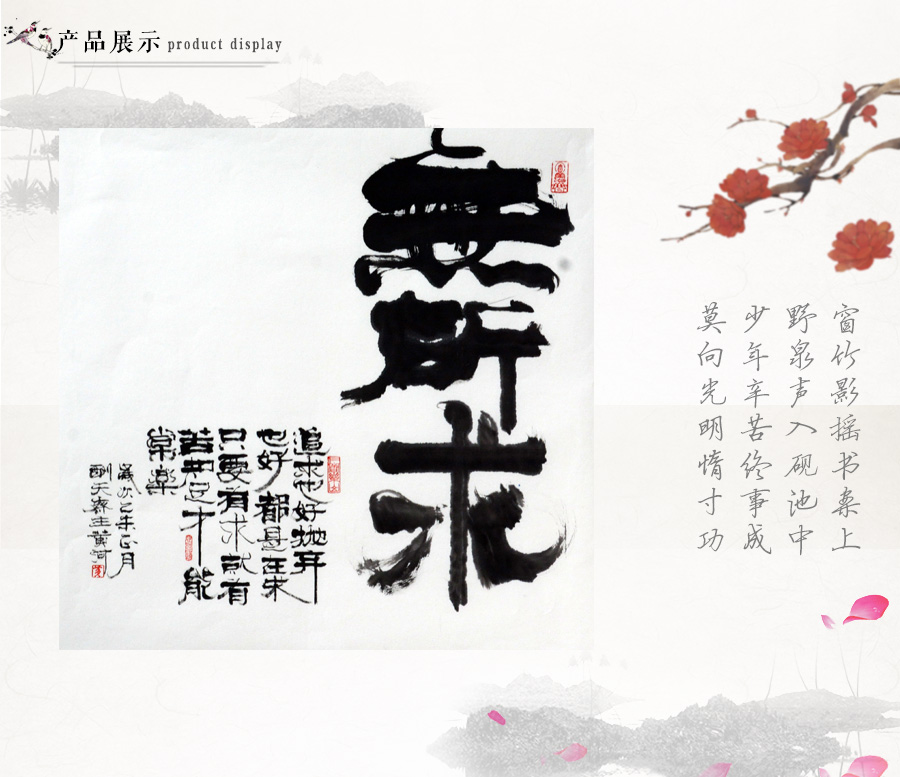 产品展示 product display
無所求
追求也好抛弃
也好都是在求
只要有求就有
苦知足才能
常樂
歲次乙未正月
黄河
窗竹影摇书案上
野泉声入砚池中
少年辛苦终事成
莫向光明惰寸功